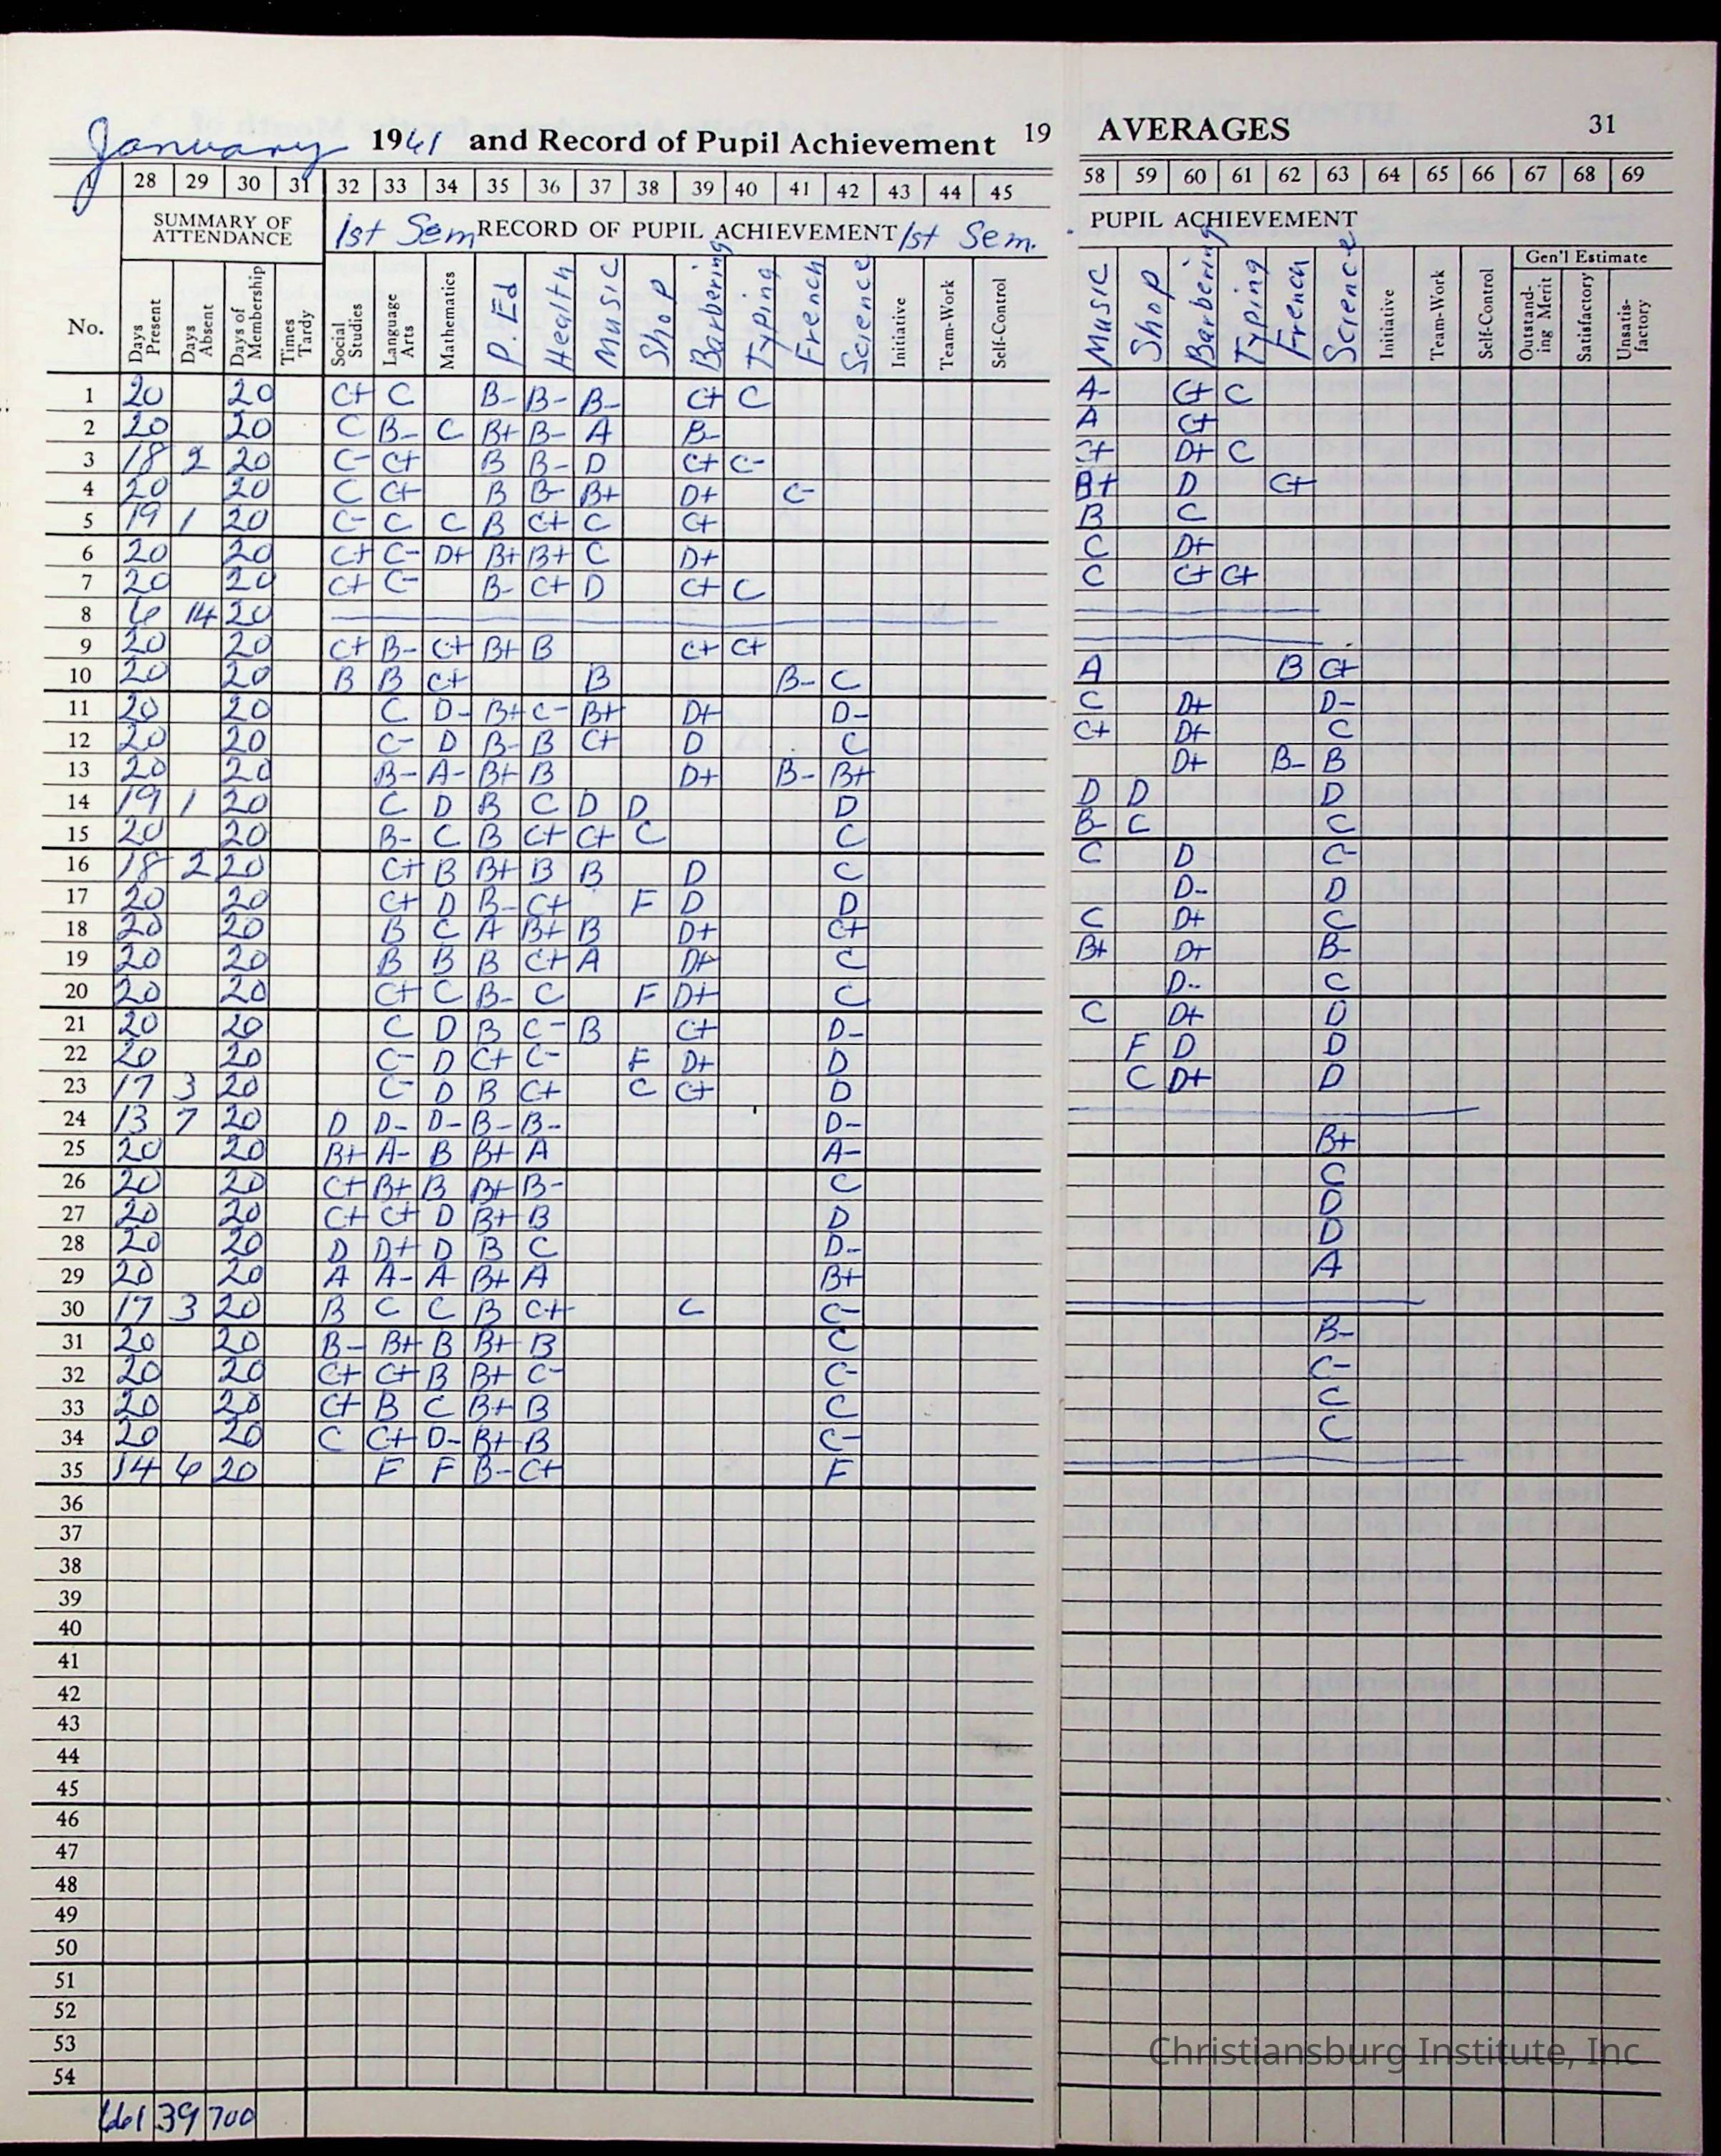 January 1961 and Record of Pupil Achievement 19
28 29 30 31 32 33 34 35 36 37 38 39 40 41 42 43 44 45
SUMMARY OF ATTENDANCE 1st Sem RECORD OF PUPIL ACHIEVEMENT 1st Sem.
No. Days Present Days Absent Days of Membership Times Tardy Social Studies Language Arts Mathematics P. Ed Health Music Shop Barbering Typing French Science Initiative Team-Work Self-Control
1 20 20 C+ C B- B- B- C+ C
2 20 20 C B- C B+ B- A B-
3 18 2 20 C- C+ B B- D C+ C-
4 20 20 C C+ B B- B+ D+ C-
5 19 1 20 C- C C B C+ C C+
6 20 20 C+ C- D+ B+ B+ C D+
7 20 20 C+ C- B- C+ D C+ C
8 6 14 20
9 20 20 C+ B- C+ B+ B C+ C+
10 20 20 B B C+ B B- C
11 20 20 C D- B+ C- B+ D+ D-
12 20 20 C- D B- B C+ D C
13 20 20 B- A- B+ B D+ B- B+
14 19 1 20 C D B C D D D
15 20 20 B- C B C+ C+ C C
16 18 2 20 C+ B B+ B B D C
17 20 20 C+ D B- C+ F D D
18 20 20 B C A B+ B D+ C+
19 20 20 B B B C+ A D+ C
20 20 20 C+ C B- C F D+ C
21 20 20 C D B C- B C+ D-
22 20 20 C- D C+ C- F D+ D
23 17 3 20 C- D B C+ C C+ D
24 13 7 20 D D- D- B- B- D-
25 20 20 B+ A- B B+ A A-
26 20 20 C+ B+ B B+ B- C
27 20 20 C+ C+ D B+ B D
28 20 20 D D+ D B C D-
29 20 20 A A- A B+ A B+
30 17 3 20 B C C B C+ C C-
31 20 20 B- B+ B B+ B C
32 20 20 C+ C+ B B+ C- C-
33 20 20 C+ B C B+ B C
34 20 20 C C+ D- B+ B C-
35 14 6 20 F F B- C+ F
36
37
38
39
40
41
42
43
44
45
46
47
48
49
50
51
52
53
54
661 39 700
AVERAGES 31
58 59 60 61 62 63 64 65 66 67 68 69
PUPIL ACHIEVEMENT
Gen'l Estimate
Music Shop Barbering Typing French Science Initiative Team-Work Self-Control Outstanding Merit Satisfactory Unsatisfactory
A- C+ C
A C+
C+ D+ C
B+ D C+
B C
C D+
C C+ C+
A B C+
C D+ D-
C+ D+ C
D+ B- B
D D D
B- C C
C D C-
D- D
C D+ C
B+ D+ B-
D- C
C D+ D
F D D
C D+ D
B+
C
D
D
A
B-
C-
C
C
Christiansburg Institute, Inc